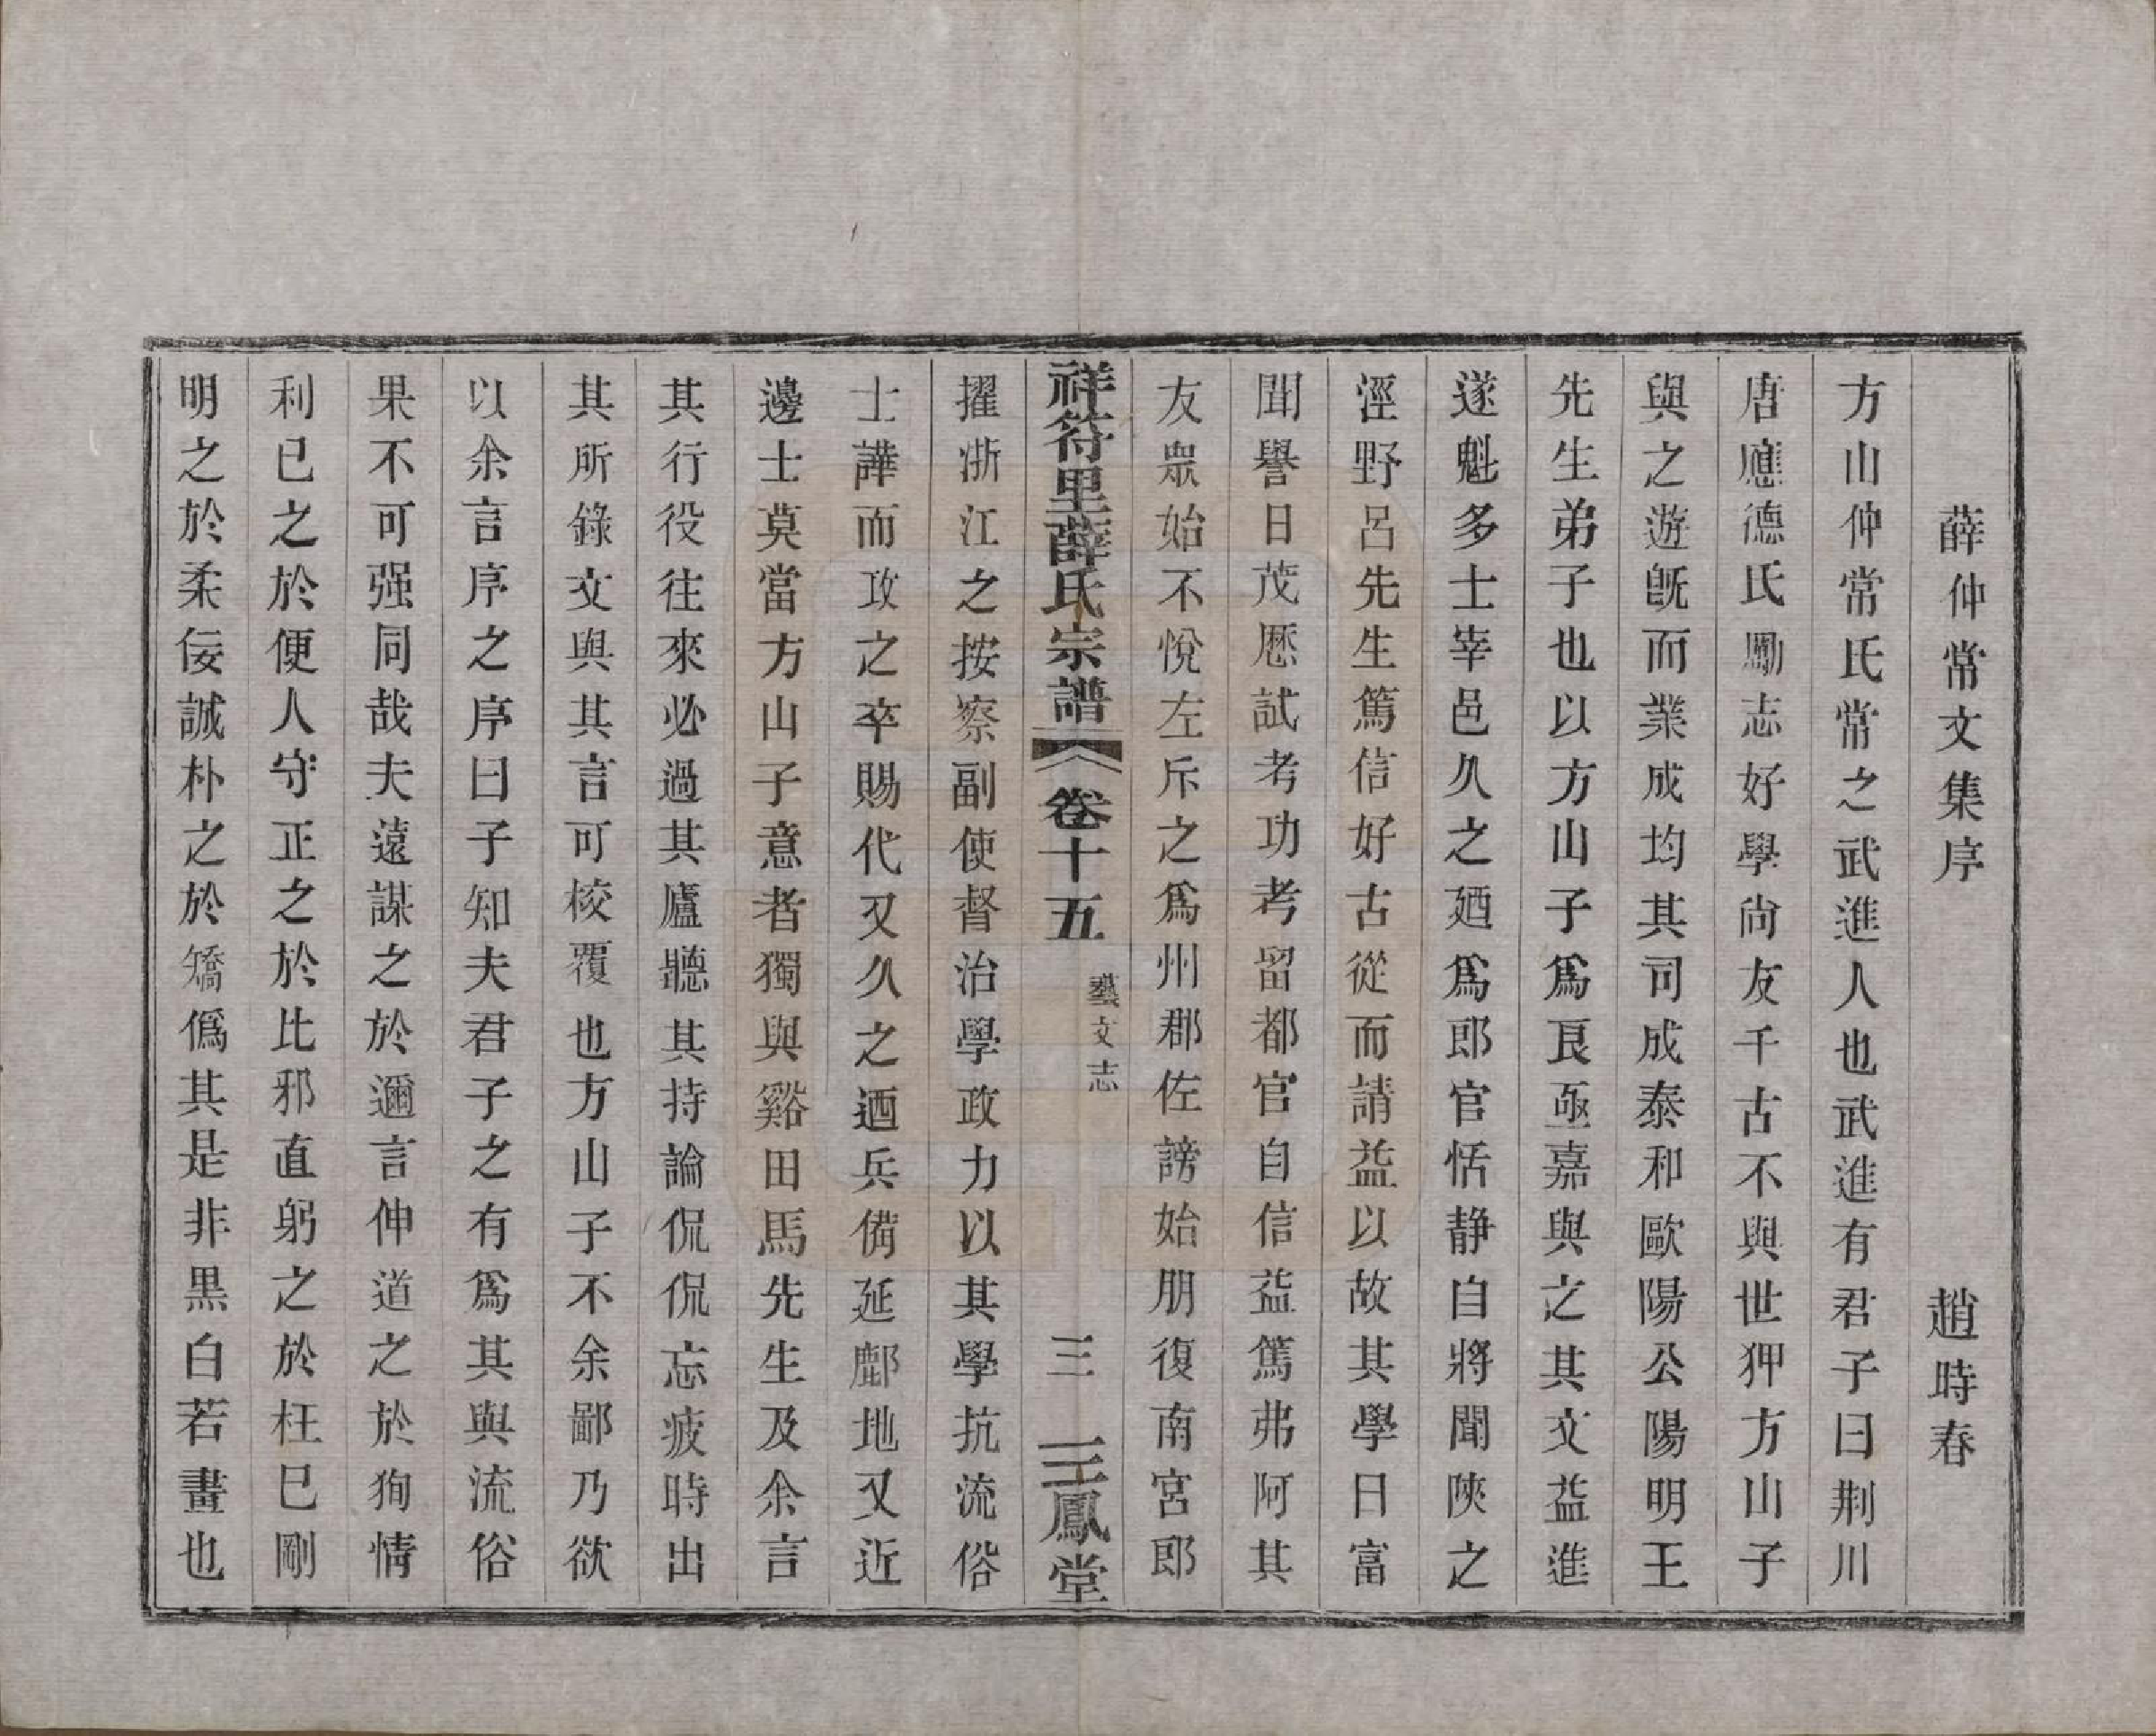 薛仲常文集序　趙時春
方山仲常氏常之武進人也武進有君子曰荆川
唐應德氏勵志好學尙友千古不與世狎方山子
與之遊旣而業成均其司成泰和歐陽公陽明王
先生弟子也以方山子爲良亟嘉與之其文益進
遂魁多士宰邑久之廼爲郎官恬静自將聞陝之
涇野呂先生篤信好古從而請益以故其學日富
聞譽日茂歷試考功考留都官自信益篤弗阿其
友衆始不悅左斥之爲州郡佐謗始朋復南宮郎
祥符里薛氏宗譜　卷十五　藝文志　三　三鳳堂
擢浙江之按察副使督治學政力以其學抗流俗
士譁而攻之卒賜代又久之迺兵備延鄜地又近
邊士莫當方山子意者獨與谿田馬先生及余言
其行役往來必過其廬聽其持論侃侃忘疲時出
其所錄文與其言可校覆也方山子不余鄙乃欲
以余言序之序曰子知夫君子之有爲其與流俗
果不可强同哉夫遠謀之於邇言伸道之於狥情
利已之於便人守正之於比邪直躬之於枉巳剛
明之於柔佞誠朴之於矯僞其是非黒白若畫也